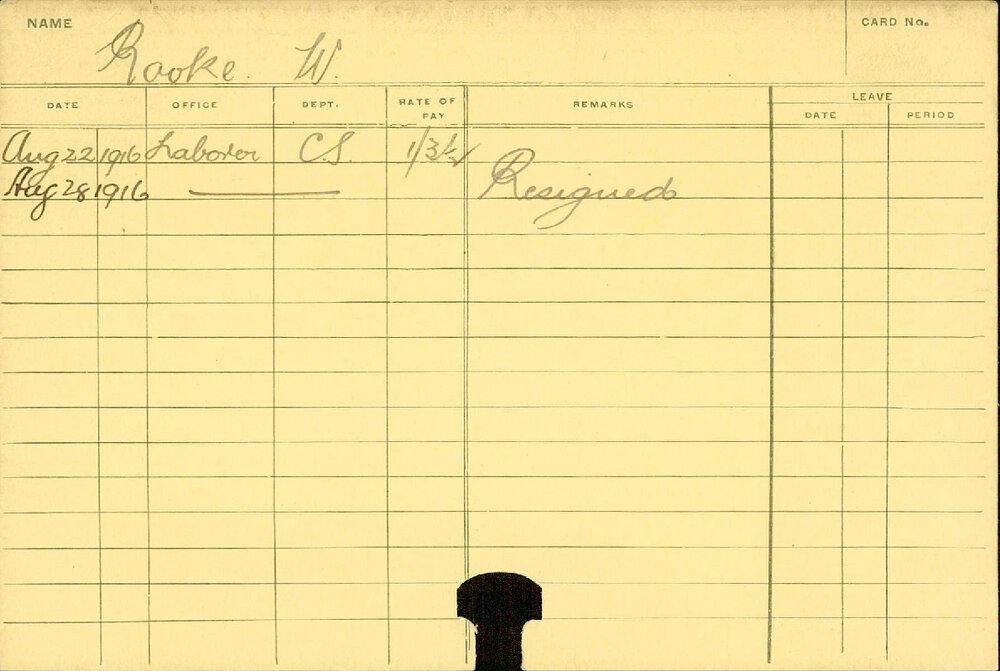 NAME CARD No.
Rooke. W.
DATE OFFICE DEPT. RATE OF PAY REMARKS LEAVE
DATE PERIOD
Aug 22 1916 Laborer C.S. 1/3½
Aug 28 1916 —— Resigned